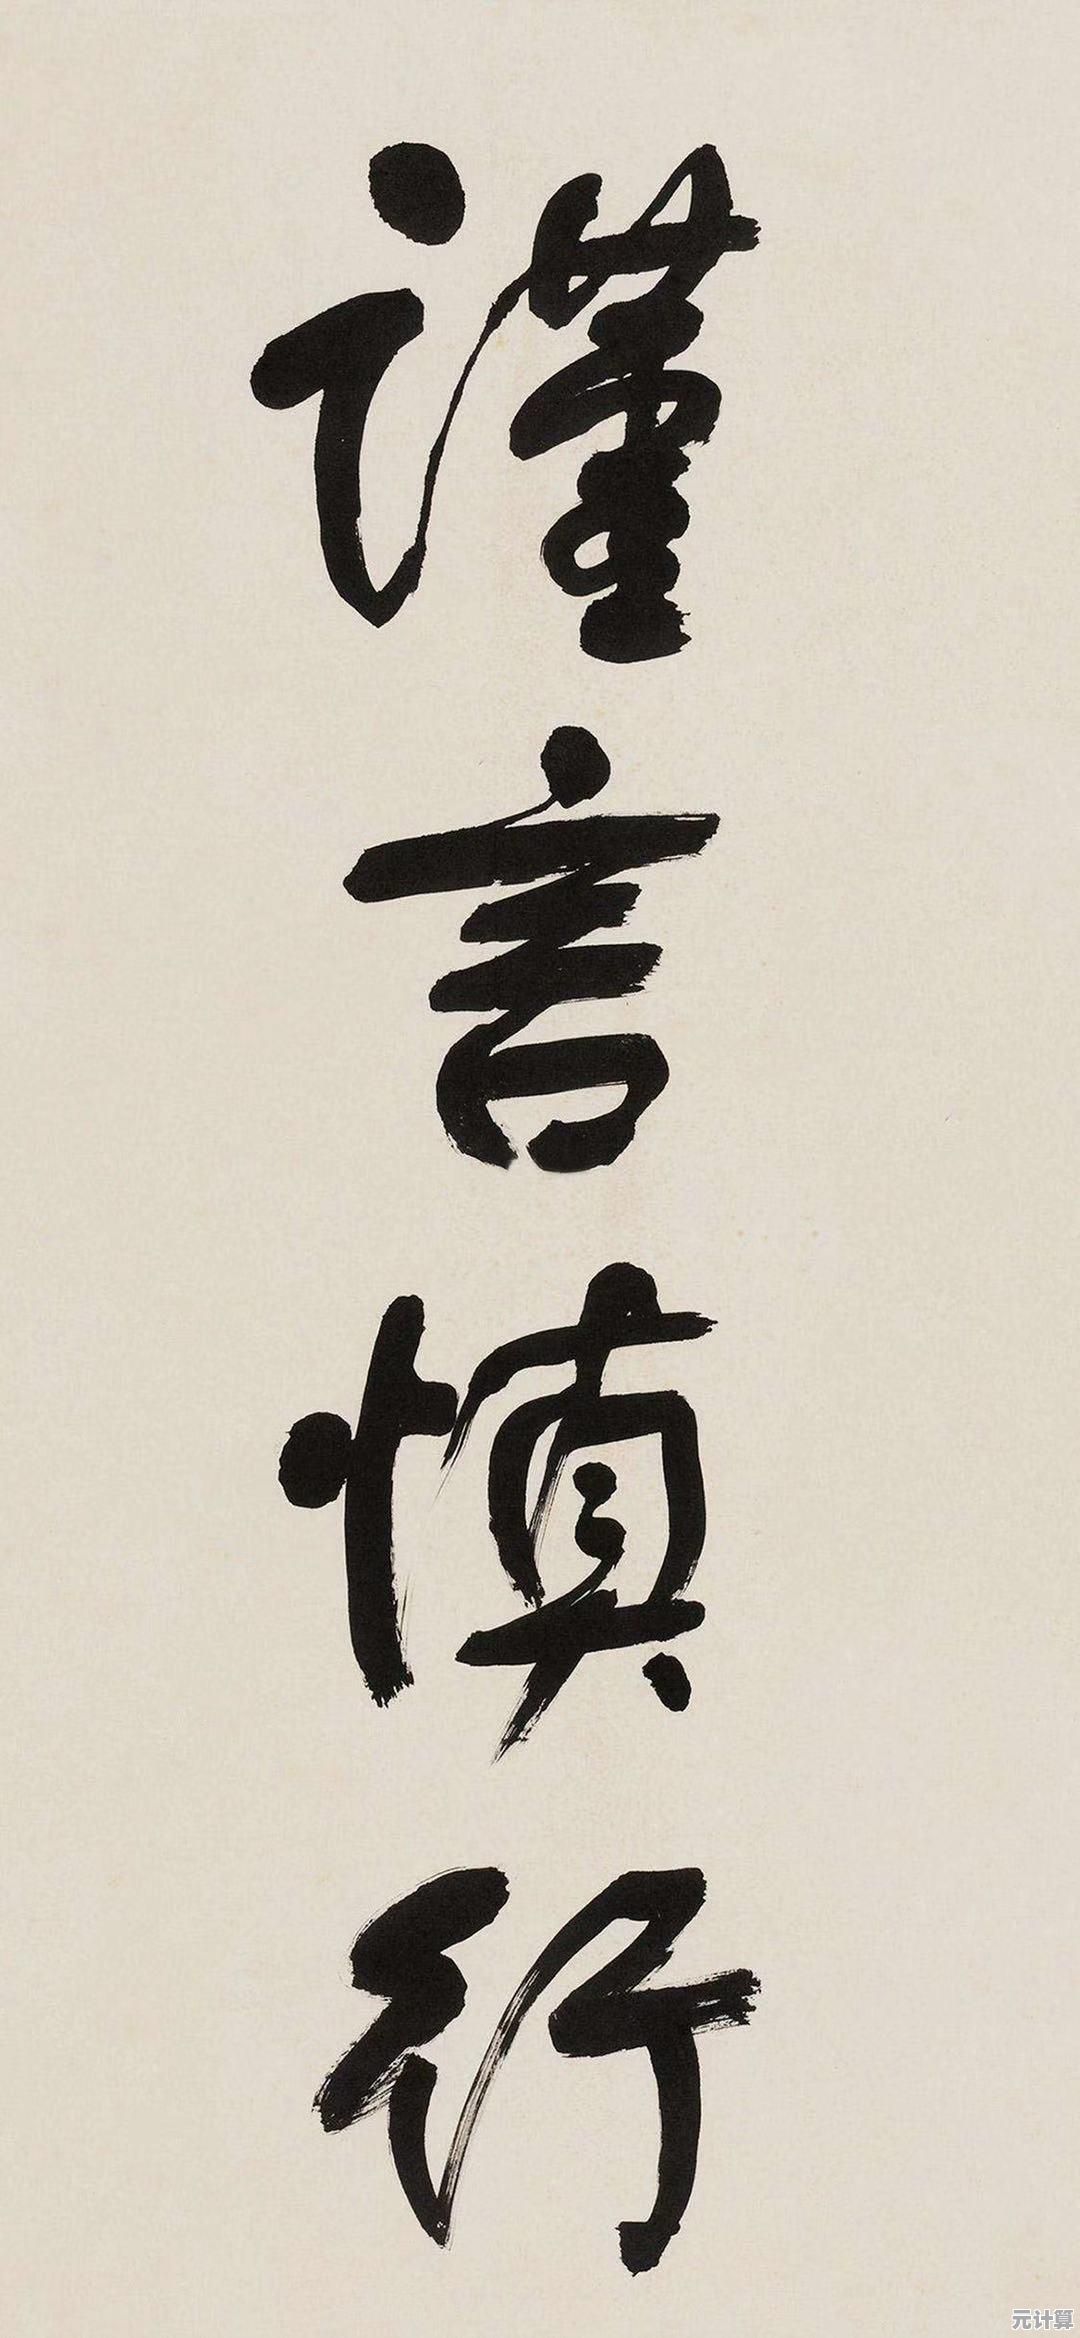 謹言慎行
元计算